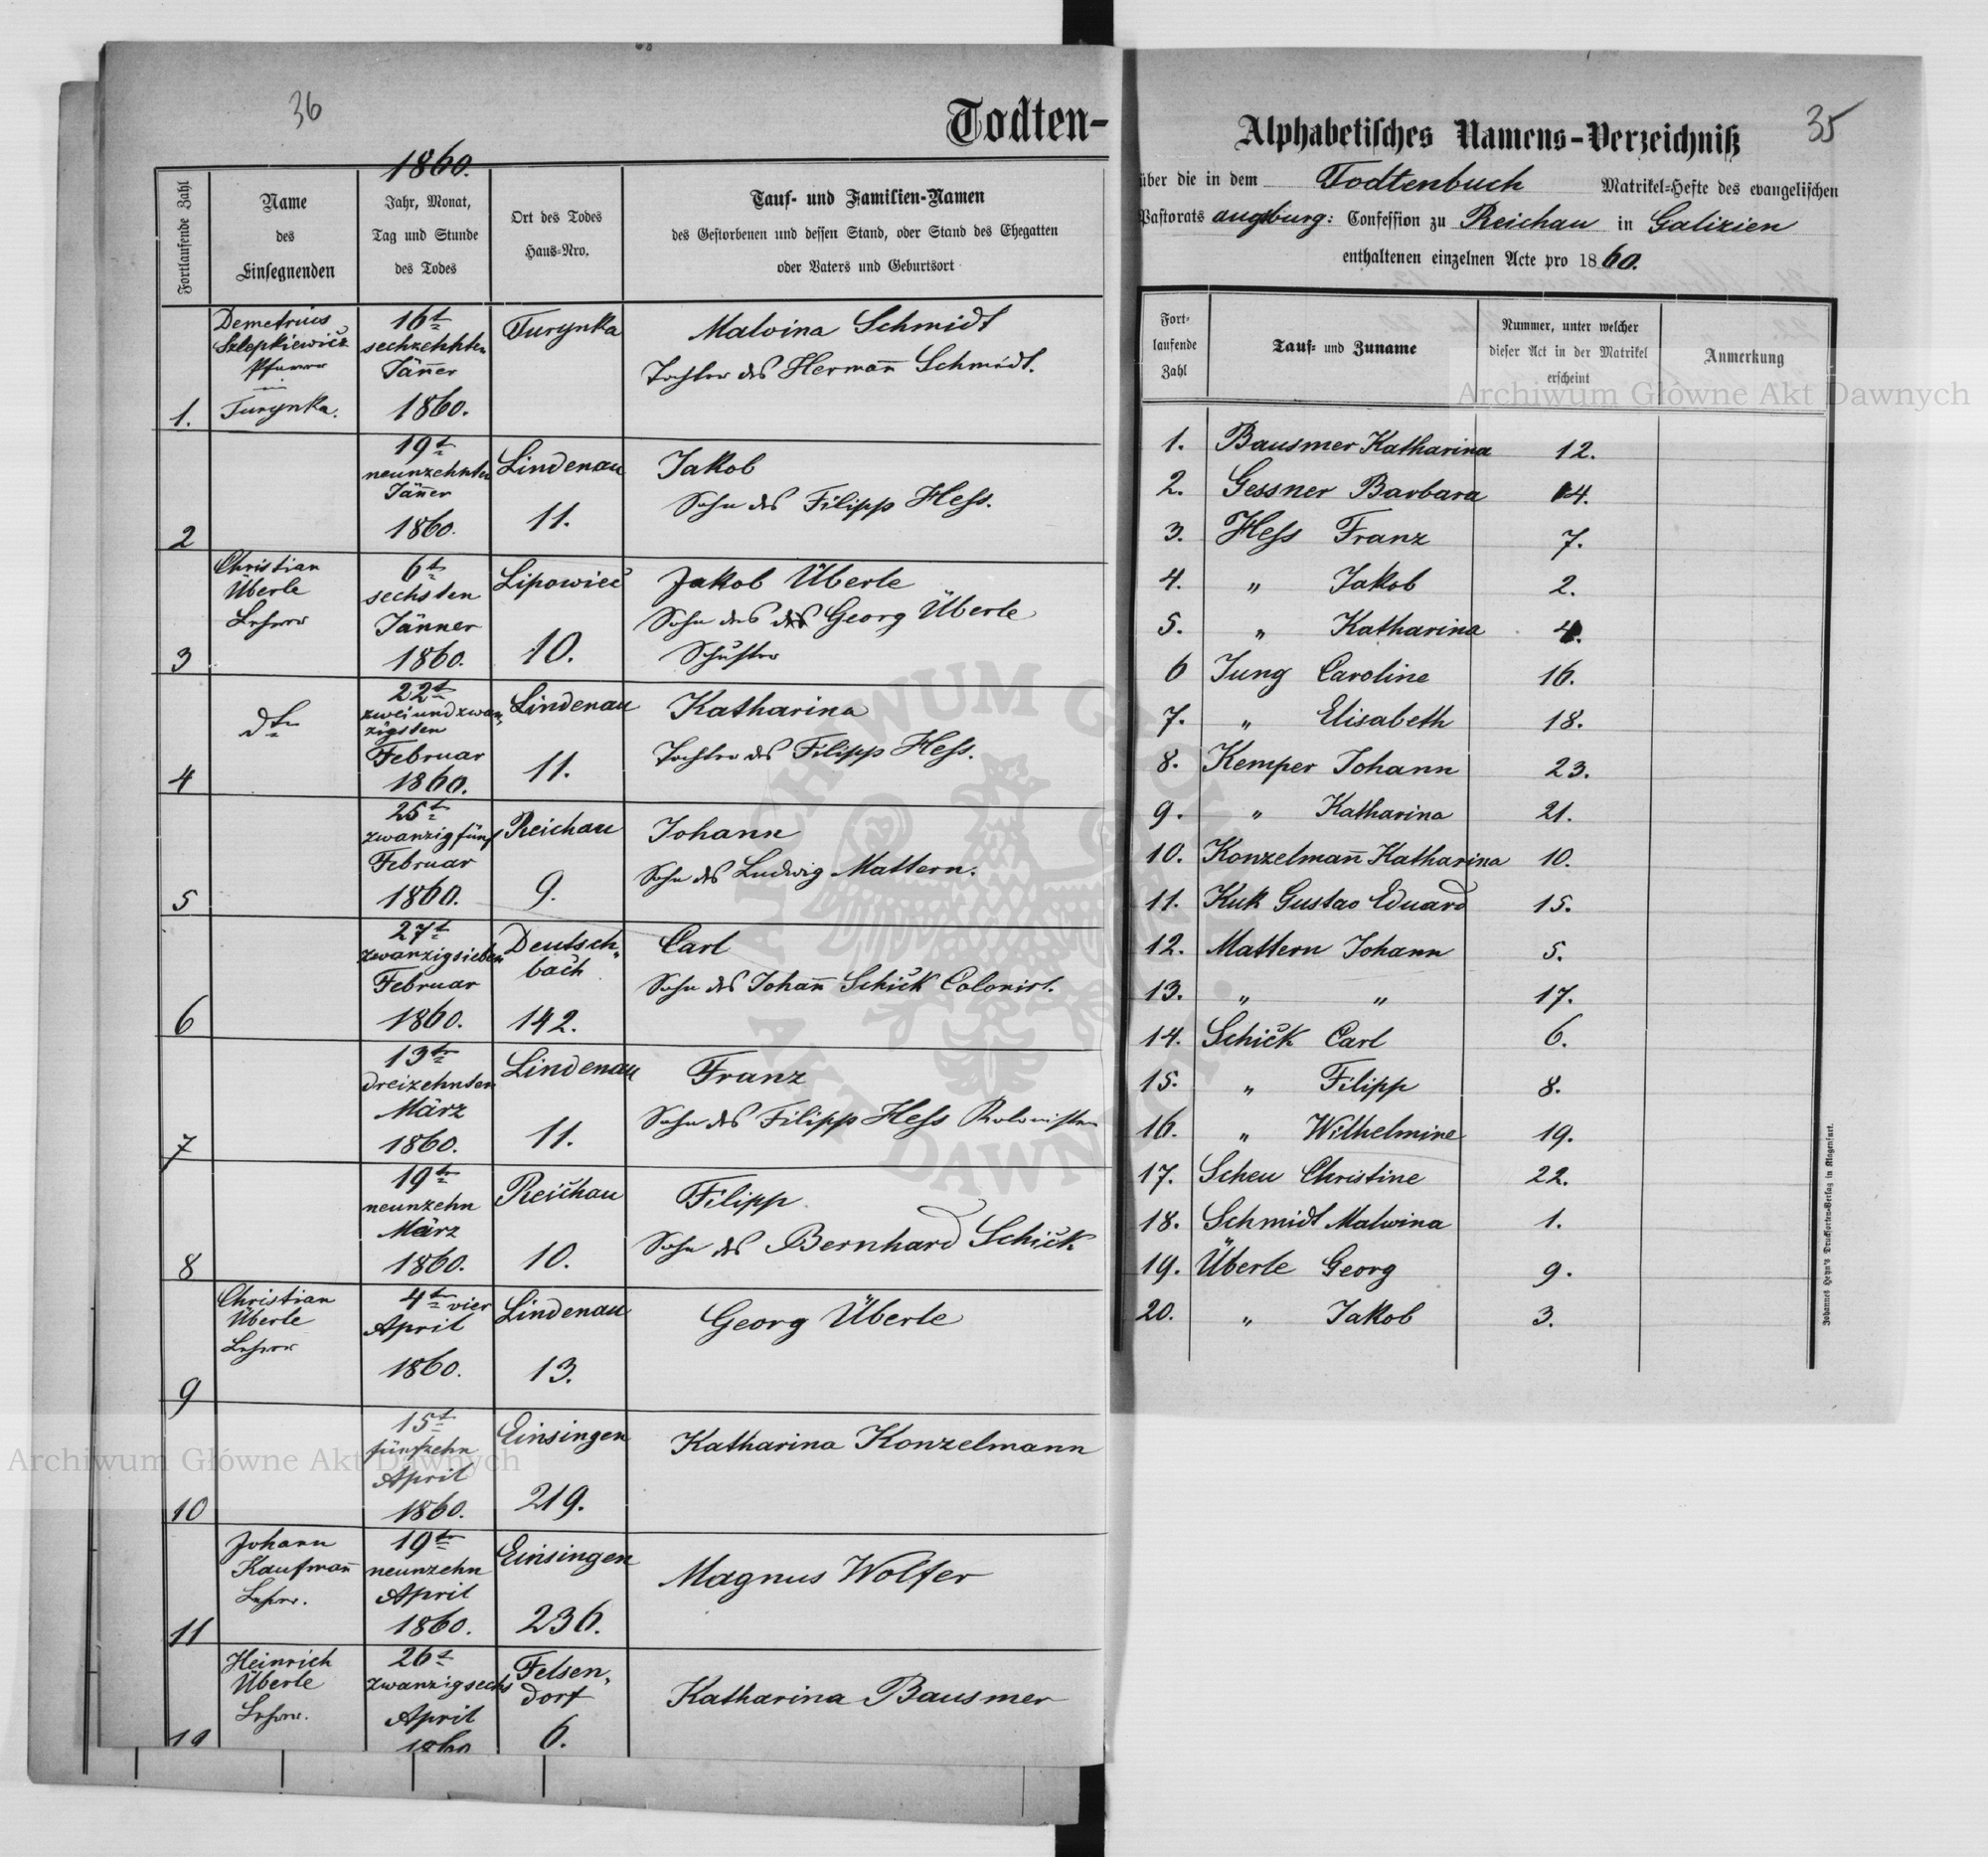 36
Todten-
1860.
Fortlaufende Zahl
Name
des
Einsegnenden
Jahr, Monat,
Tag und Stunde
des Todes
Ort des Todes
Haus-Nro.
Tauf- und Familien-Namen
des Gestorbenen und dessen Stand, oder Stand des Ehegatten
oder Vaters und Geburtsort
1.
Demetrius
Szlepkiewicz
Pfarrer
in
Turynka.
16t
sechzehnten
Jänner
1860.
Turynka
Malvina Schmidt
Tochter des Hermann̄ Schmidt.
2
19t
neunzehnten
Jänner
1860.
Lindenau
11.
Jakob
Sohn des Filipp Hess.
3
Christian
Überle
Lehrer
6t
sechsten
Jänner
1860.
Lipowiec
10.
Jakob Überle
Sohn des des Georg Überle
Schuster
4
dto
22t
zweiundzwan-
zigsten
Februar
1860.
Lindenau
11.
Katharina
Tochter des Filipp Hess.
5
25t
zwanzigfünf
Februar
1860.
Reichau
9.
Johann
Sohn des Ludwig Mattern.
6
27t
zwanzigsieben
Februar
1860.
Deutsch-
bach
142.
Carl
Sohn des Johan̄ Schick Colonist.
7
13ten
dreizehnten
März
1860.
Lindenau
11.
Franz
Sohn des Filipp Hess Kolonisten
8
19ten
neunzehn
März
1860.
Reichau
10.
Filipp
Sohn des Bernhard Schick
9
Christian
Überle
Lehrer
4ten vier
April
1860.
Lindenau
13.
Georg Überle
10
15t
fünfzehn
April
1860.
Einsingen
219.
Katharina Konzelmann
11
Johann
Kaufman̄
Lehrer.
19ten
neunzehn
April
1860.
Einsingen
236.
Magnus Wolfer
12
Heinrich
Überle
Lehrer.
26t
zwanzigsechs
April
1860
Felsen-
dorf
6.
Katharina Bausmer
35
Alphabetisches Namens-Verzeichniß
über die in dem Todtenbuch Matrikel-Hefte des evangelischen
Pastorats augsburg: Confession zu Reichau in Galizien
enthaltenen einzelnen Acte pro 1860.
Fort-
laufende
Zahl
Tauf- und Zuname
Nummer, unter welcher
dieser Act in der Matrikel
erscheint
Anmerkung
1. Bausmer Katharina 12.
2. Gessner Barbara 14.
3. Hess Franz 7.
4. " Jakob 2.
5. " Katharina 4.
6 Jung Caroline 16.
7. " Elisabeth 18.
8. Kemper Johann 23.
9. " Katharina 21.
10. Konzelman̄ Katharina 10.
11. Kuk Gustav Eduard 15.
12. Mattern Johann 5.
13. " " 17.
14. Schick Carl 6.
15. " Filipp 8.
16. " Wilhelmine 19.
17. Scheu Christine 22.
18. Schmidt Malwina 1.
19. Überle Georg 9.
20. " Jakob 3.
Johannes Heyn's Drucksorten-Verlag in Klagenfurt.
Archiwum Główne Akt Dawnych
Archiwum Główne Akt Dawnych
ARCHIWUM GŁÓWNE AKT DAWNYCH